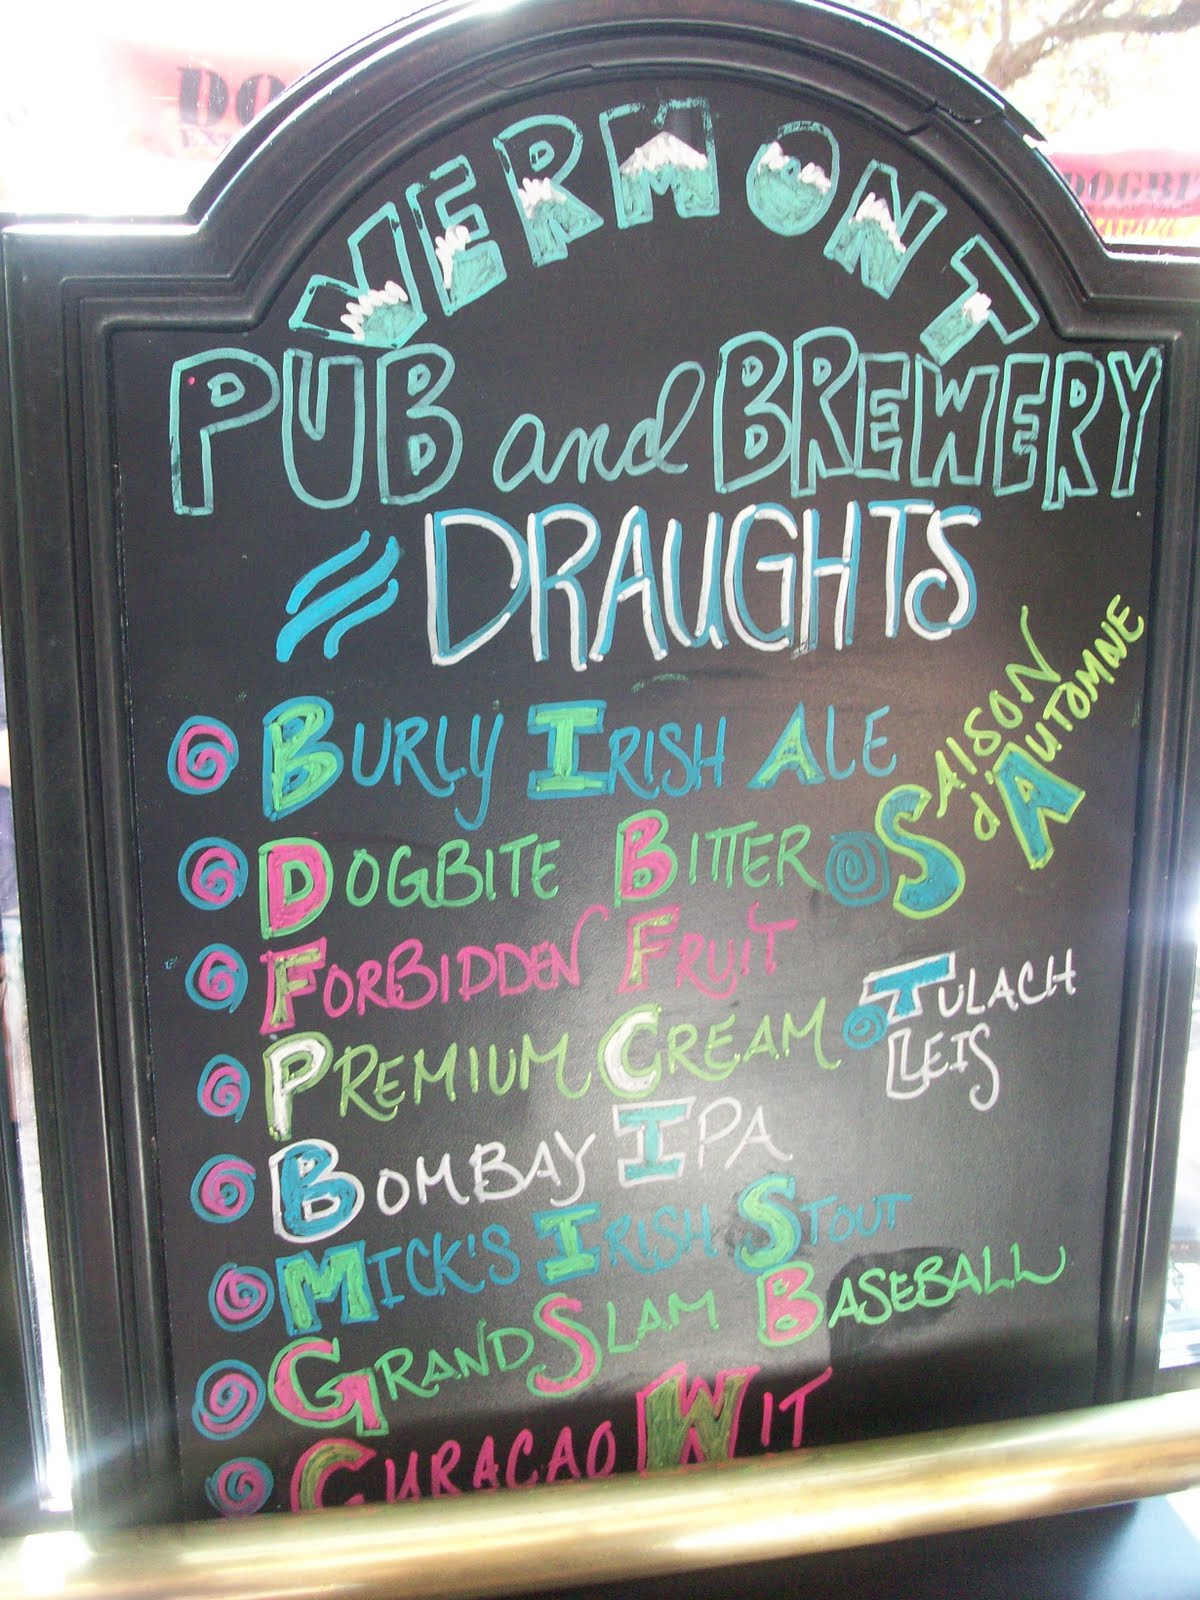 DO
DOGBI
VERMONT
PUB and BREWERY
DRAUGHTS
BURLY IRISH ALE
DOGBITE BITTER
FORBIDDEN FRUIT
PREMIUM CREAM
BOMBAY IPA
MICK'S IRISH STOUT
GRAND SLAM BASEBALL
CURACAO WIT
SAISON
d'AUTOMNE
TULACH
LEIS